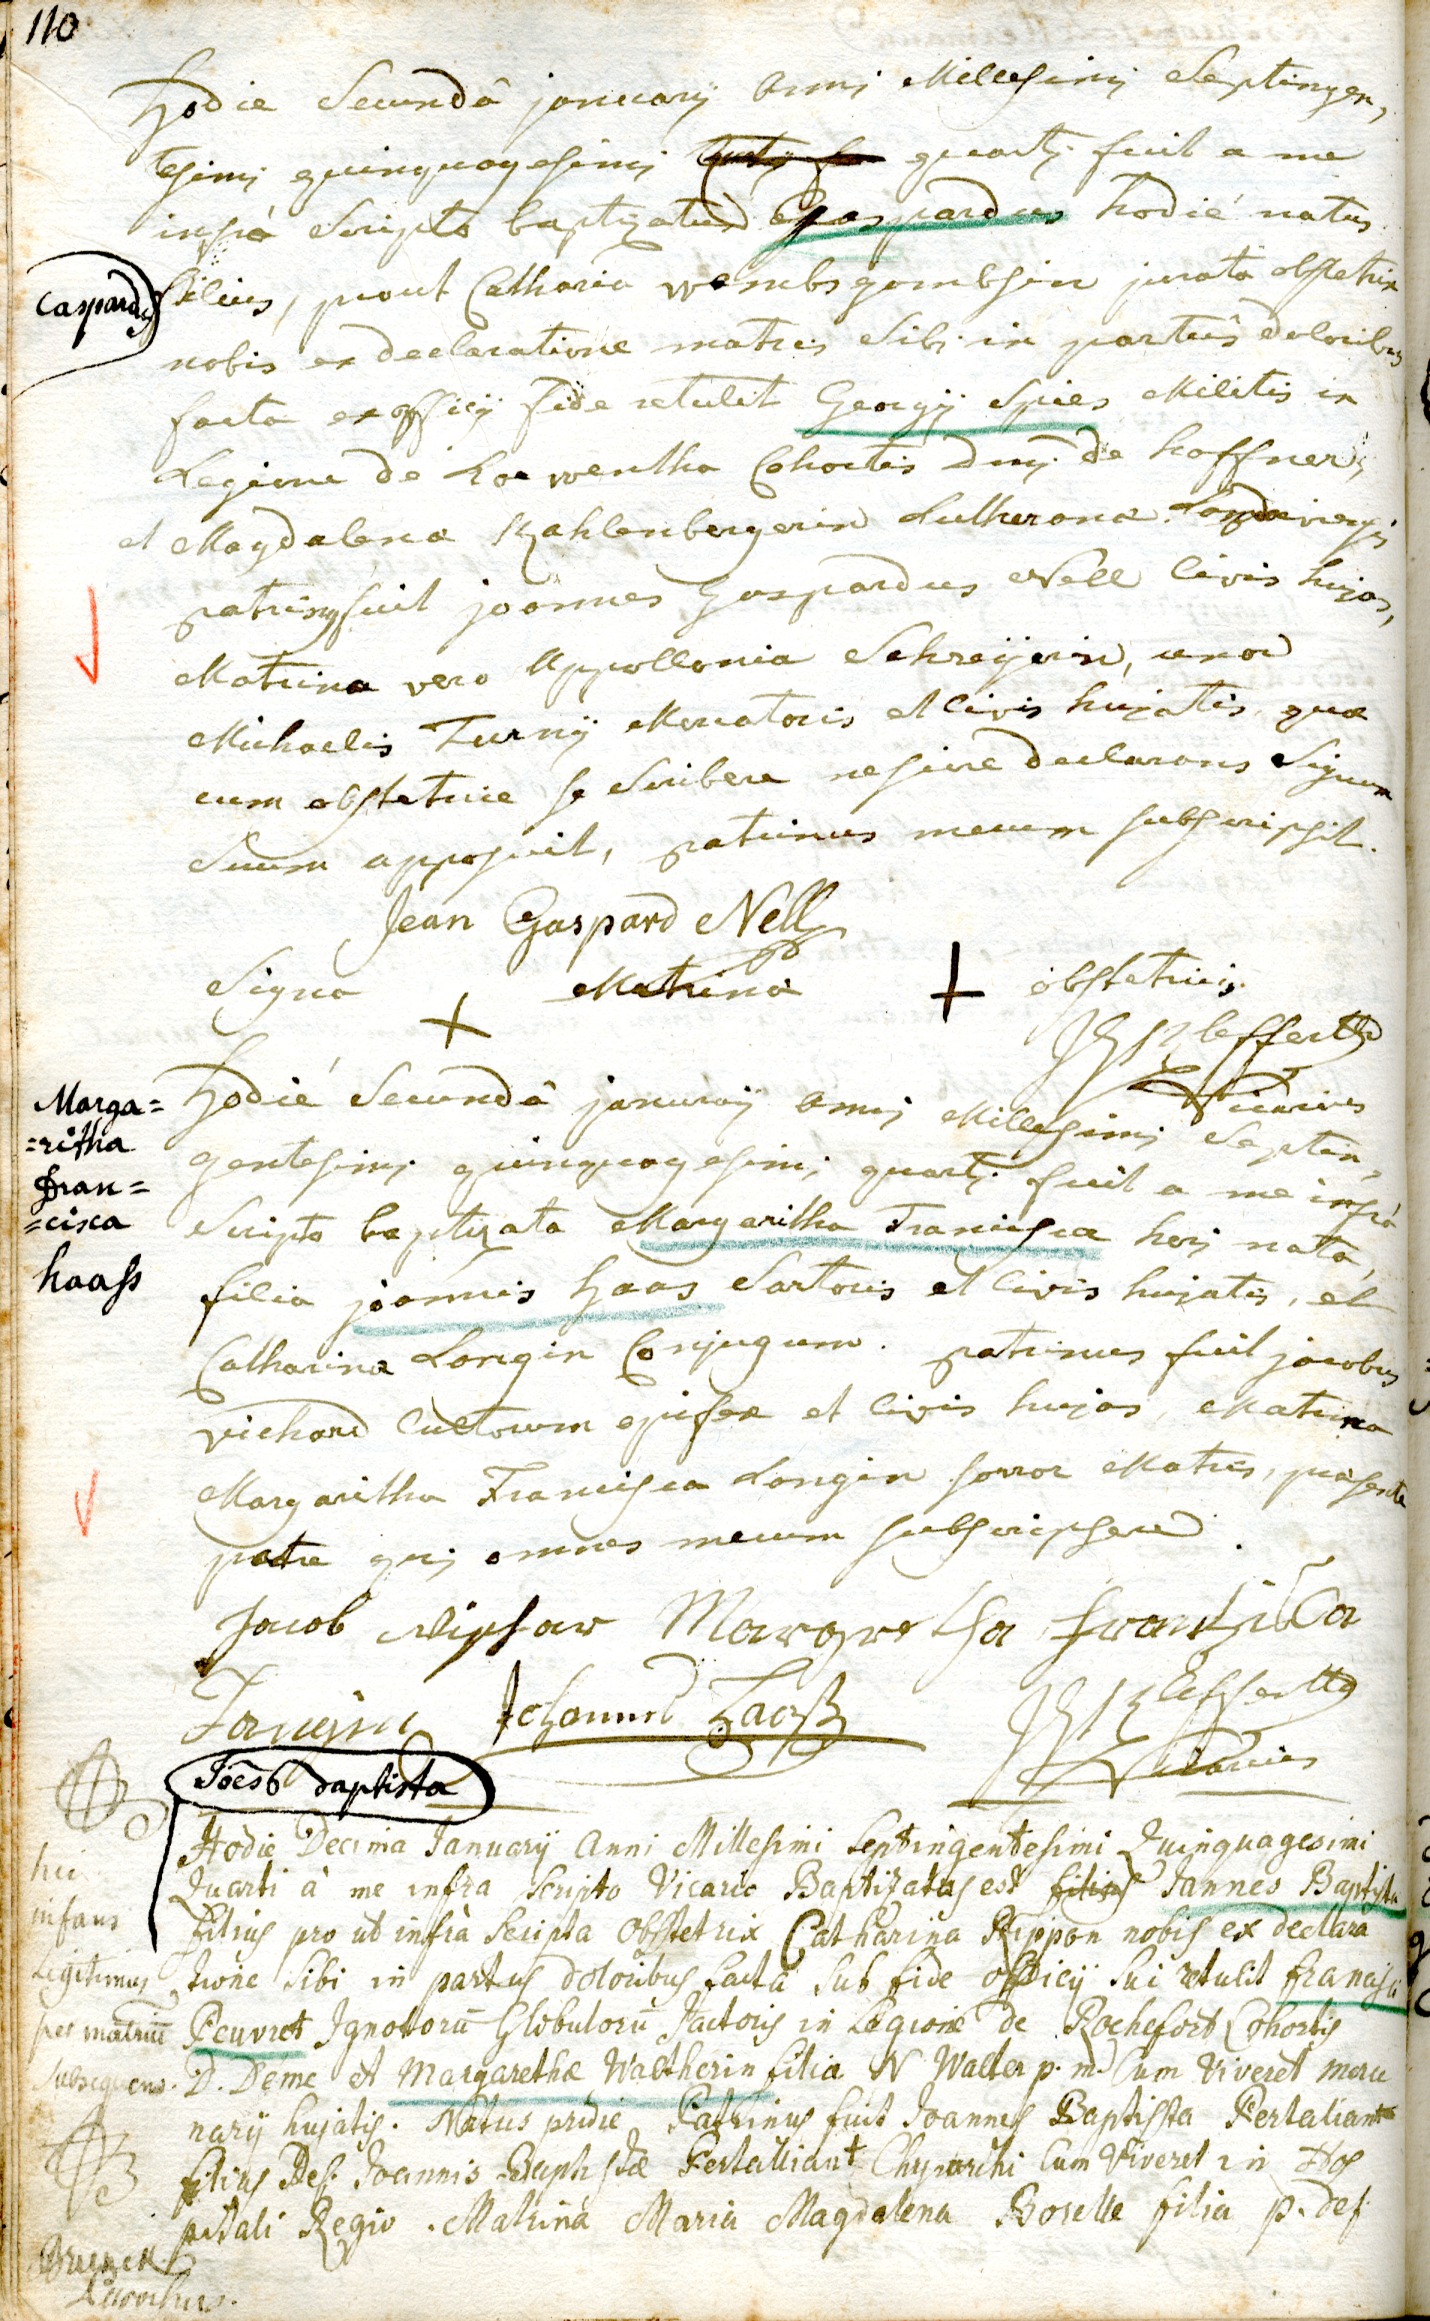 110
Hodie Secundâ january anni Millesimi Septingen,
tesimi quinquagesimi quarti fuit a me
infrà Scripto baptizatus Gaspardus hodié natus
Caspardus
filius, prout Catharia wembsgombsin jurata obstetrix
nobis ex declaratione matris Sibi in partûs doloribus
facta ex officij fide retulit Georgij Spies Militis in
Legione de Loewentha Cohortis Dnj de hoffner,
et Magdalena Kahlenbergerin Lutherana
patrinus fuit joannes Gaspardus Nell Civis hujas,
Matrina vero Appollonia Schreÿerin, uxor
Michaelis Turnij Mercatoris et Civis hujatis, quæ
cum obstetrice se Scribere nescire declarans Signum
Suum apposuit, patrinus mecum subscripsit.
Jean Gaspard Nell
Signa + Matrina + obstetricis
Kleffert
Vicarius
Marga=
=ritha
fran=
=cisca
haass
Hodié Secundâ january annj Millesimj Septin,
gentesimj quinquagesimj quartj fuit a me infrà
Scripto baptizata Margaritha Francisca herj nata,
filia joannis haas Sartoris et Civis hujatis, et
Catharinæ Longin Conjugum. patrinus fuit jacobus
richard Cultorum opifex et Civis hujas, Matrina
Margaritha Francisca Longin sorror Matris, præsente
patre qui omnes mecum subscripsere.
Jacob Margretha frantzisca
Johannes Haaß
Kleffert
Vicarius
Joes baptista
Hodie Decima Januarij Anni Millesimi Septingentesimi Quinquagesimi
Quarti à me infra scripto Vicario Baptizatus est filius Jannes Baptista
filius pro ut infrà Scripta Obstetrix Catharina Rippon nobis ex declara
tione Sibi in partus doloribus facta Sub fide officij Sui retulit francisci
Peuvret Ignotorū Globulorū factoris in Legione de Rochefort Cohortis
D. Deme et Margarethæ Waltherin filia N Walter p. m. Cum Viveret merce
narij hujatis. Natus pridie Patrinus fuit Joannes Baptista Pertaliant
filius Def. Joannis Baphistæ Pertalliant Chyrurchi Cum Viveret in Hos
pitali Regio. Matrina Maria Magdalena Roselle filia p. def
hic
infans
Legitimus
per matriū
subsequens.